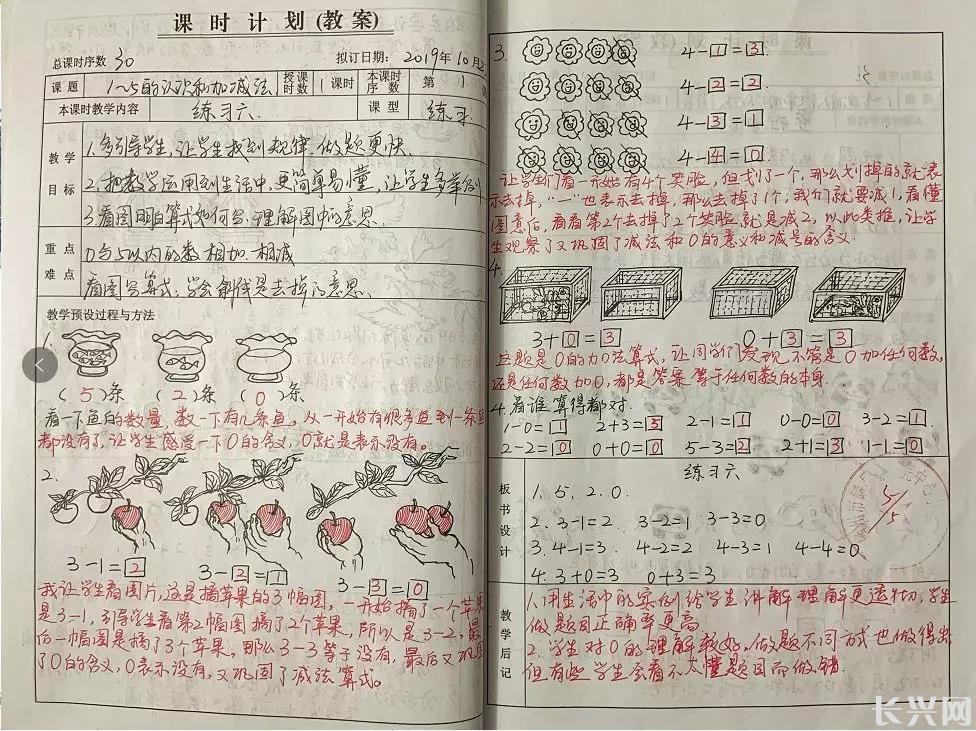 课时计划(教案)
总课时序数 30 拟订日期: 2019年10月
课题 1~5的认识和加减法 授课时数 1课时 本课时序数 第
本课时教学内容 练习六. 课型 练习
教学目标
1.多引导学生,让学生找到规律,做题更快.
2.把数学运用到生活中,更简单易懂,让学生多举例
3.看图明白算式如何写.理解图中的意思.
重点难点
0与5以内的数相加.相减
看图写算式,学会斜线是去掉的意思.
教学预设过程与方法
1.
(5)条 (2)条 (0)条
看一下鱼的数量,数一下有几条鱼,从一开始有很多鱼到一条鱼
都没有了,让学生感受一下0的含义,0就是表示没有。
2.
3-1=2 3-2=1 3-3=0
我让学生看图片,这是摘苹果的3幅图,一开始摘了一个苹果
是3-1,引导学生看第2幅图摘了2个苹果,所以是3-2,最
后一幅图是摘了3个苹果,那么3-3等于没有,最后又巩固
了0的含义,0表示没有,又巩固了减法算式。
3.
4-1=3
4-2=2
4-3=1
4-4=0
让学生们看一开始有4个笑脸,但划了一个,那么划掉的就表
示去掉,"一"也表示去掉,那么去掉了1个,我们就要减1,看懂
图意后,看看第2个去掉了2个笑脸就是减2,以此类推,让学
生观察了又巩固了减法和0的意义和减号的含义.
4.
3+0=3 0+3=3
这题是0的加法算式,让同学们发现,不管是0加任何数,
还是任何数加0,都是答案等于任何数的本身.
4.看谁算得都对.
1-0=1 2+3=5 2-1=1 0-0=0 3-2=1
2-2=0 0+0=0 5-3=2 2+1=3 1-1=0
板书设计
练习六
1. 5. 2. 0.
2. 3-1=2 3-2=1 3-3=0
3. 4-1=3. 4-2=2 4-3=1 4-4=0
4: 3+0=3 0+3=3
教学后记
1.用生活中的实例给学生讲解理解更透彻,学生
做题目正确率更高
2.学生对0的理解较好,做题不同方式也做得出
但有些学生会看不太懂题目而做错.
长兴网